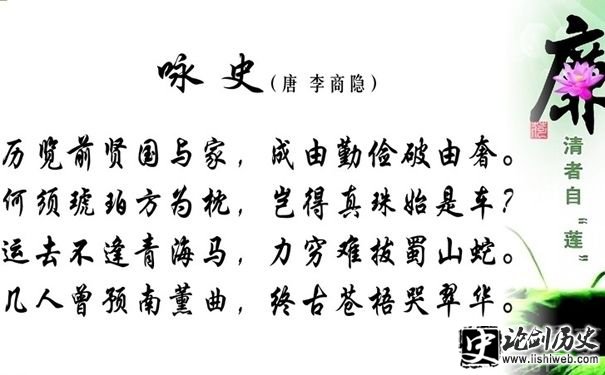 咏史(唐 李商隐)
历览前贤国与家，成由勤俭破由奢。
何须琥珀方为枕，岂得真珠始是车?
运去不逢青海马，力穷难拔蜀山蛇。
几人曾预南薰曲，终古苍梧哭翠华。
廉
清者自“莲”
史 论剑历史
www.lishiweb.com